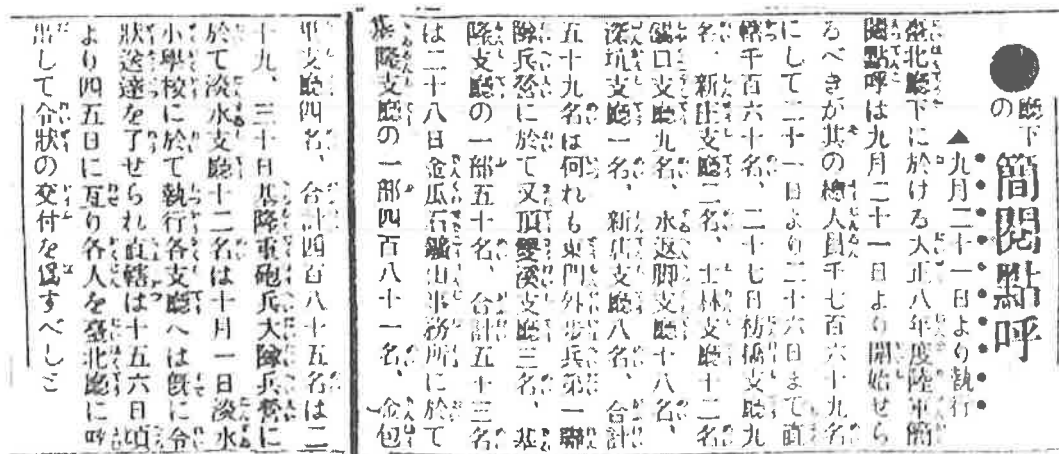 ●廳下の簡閲點呼
▲九月二十一日より執行
臺北廳下に於ける大正八年度陸軍簡
閲點呼は九月二十一日より開始せら
るべきが其の總人員千七百六十九名
にして二十一日より二十六日まで直
轄千百六十名、二十七日枋橋支廳九
名、新庄支廳二名、士林支廳十二名
錫口支廳九名、水返脚支廳十八名、
深坑支廳一名、新店支廳八名、合計
五十九名は何れも東門外步兵第一聯
隊兵營に於て又頂雙溪支廳三名、基
隆支廳の一部五十名、合計五十三名
は二十八日金瓜石鑛山事務所に於て
基隆支廳の一部四百八十一名、金包
里支廳四名、合計四百八十五名は二
十九、三十日基隆重砲兵大隊兵營に
於て淡水支廳十二名は十月一日淡水
小學校に於て執行各支廳へは旣に令
狀送達を了せられ直轄は十五六日頃
より四五日に亙り各人を臺北廳に呼
出して令狀の交付を爲すべしと